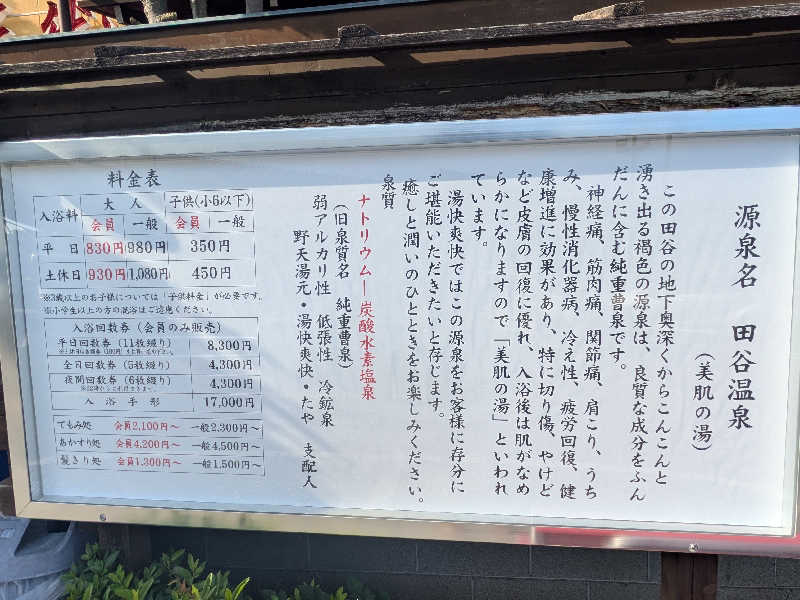 源泉名　田谷温泉
（美肌の湯）
この田谷の地下奥深くからこんこんと
湧き出る褐色の源泉は、良質な成分をふん
だんに含む純重曹泉です。
神経痛、筋肉痛、関節痛、肩こり、うち
み、慢性消化器病、冷え性、疲労回復、健
康増進に効果があり、特に切り傷、やけど
など皮膚の回復に優れ、入浴後は肌がなめ
らかになりますので「美肌の湯」といわれ
ています。
湯快爽快ではこの源泉をお客様に存分に
ご堪能いただきたいと存じます。
癒しと潤いのひとときをお楽しみください。
泉質
ナトリウム―炭酸水素塩泉
（旧泉質名　純重曹泉）
弱アルカリ性　低張性　冷鉱泉
野天湯元・湯快爽快・たや　支配人
料金表
入浴料 大人 子供(小6以下)
会員 一般 会員 一般
平日 830円 980円 350円
土休日 930円 1,080円 450円
※3歳以上のお子様については「子供料金」が必要です。
※小学生以上の方の混浴はご遠慮ください。
入浴回数券（会員のみ販売）
平日回数券（11枚綴り） 8,300円
全日回数券（5枚綴り） 4,300円
夜間回数券（6枚綴り） 4,300円
入浴手形 17,000円
てもみ処 会員2,100円～ 一般2,300円～
あかすり処 会員4,200円～ 一般4,500円～
髪きり処 会員1,300円～ 一般1,500円～